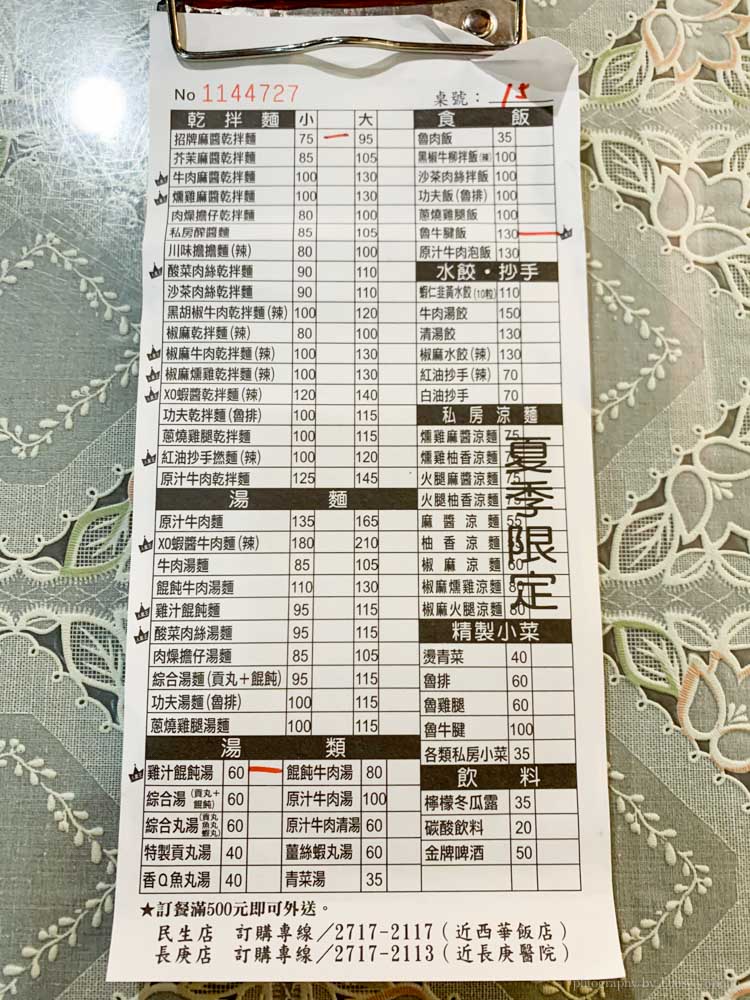 No 1144727
桌號：15
乾拌麵 小 大
招牌麻醬乾拌麵 75 95
芥茉麻醬乾拌麵 85 105
牛肉麻醬乾拌麵 100 130
燻雞麻醬乾拌麵 100 130
肉燥擔仔乾拌麵 80 100
私房醡醬麵 85 105
川味擔擔麵(辣) 80 100
酸菜肉絲乾拌麵 90 110
沙茶肉絲乾拌麵 90 110
黑胡椒牛肉乾拌麵(辣) 100 120
椒麻乾拌麵(辣) 80 100
椒麻牛肉乾拌麵(辣) 100 130
椒麻燻雞乾拌麵(辣) 100 130
XO蝦醬乾拌麵(辣) 120 140
功夫乾拌麵(魯排) 100 115
蔥燒雞腿乾拌麵 100 115
紅油抄手撚麵(辣) 100 120
原汁牛肉乾拌麵 125 145
湯麵
原汁牛肉麵 135 165
XO蝦醬牛肉麵(辣) 180 210
牛肉湯麵 85 105
餛飩牛肉湯麵 110 130
雞汁餛飩麵 95 115
酸菜肉絲湯麵 95 115
肉燥擔仔湯麵 85 105
綜合湯麵(貢丸＋餛飩) 95 115
功夫湯麵(魯排) 100 115
蔥燒雞腿湯麵 100 115
湯類
雞汁餛飩湯 60 餛飩牛肉湯 80
綜合湯(貢丸+餛飩) 60 原汁牛肉湯 100
綜合丸湯(貢丸魚丸蝦丸) 60 原汁牛肉清湯 60
特製貢丸湯 40 薑絲蝦丸湯 60
香Q魚丸湯 40 青菜湯 35
食飯
魯肉飯 35
黑椒牛柳拌飯(辣) 100
沙茶肉絲拌飯 100
功夫飯(魯排) 100
蔥燒雞腿飯 100
魯牛腱飯 130
原汁牛肉泡飯 130
水餃・抄手
蝦仁韭黃水餃(10粒) 110
牛肉湯餃 150
清湯餃 130
椒麻水餃(辣) 130
紅油抄手(辣) 70
白油抄手 70
私房涼麵
夏季限定
燻雞麻醬涼麵 75
燻雞柚香涼麵
火腿麻醬涼麵 75
火腿柚香涼麵
麻醬涼麵 55
柚香涼麵
椒麻涼麵 60
椒麻燻雞涼麵
椒麻火腿涼麵 80
精製小菜
燙青菜 40
魯排 60
魯雞腿 60
魯牛腱 100
各類私房小菜 35
飲料
檸檬冬瓜露 35
碳酸飲料 20
金牌啤酒 50
★訂餐滿500元即可外送。
民生店 訂購專線／2717-2117（近西華飯店）
長庚店 訂購專線／2717-2113（近長庚醫院）